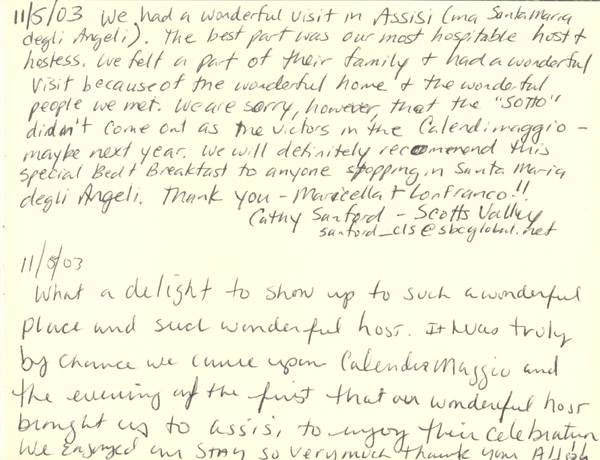 11/5/03 We had a wonderful visit in Assisi (ma Santa Maria
degli Angeli). The best part was our most hospitable host +
hostess. We felt a part of their family + had a wonderful
visit because of the wonderful home + the wonderful
people we met. We are sorry, however, that the "SOTTO"
didn't come out as the victors in the Calendimaggio -
maybe next year. We will definitely recommend this
special Bed + Breakfast to anyone stopping in Santa Maria
degli Angeli. Thank you - Maricella + Lonfranco!!
Cathy Sanford - Scotts Valley
sanford_cls@sbcglobal.net
What a delight to show up to such a wonderful
place and such wonderful host. It was truly
by chance we came upon Calendia Maggio and
the evening of the first that our wonderful host
brought us to assisi to enjoy their celebration
We enjoyed our stay so very much thank you